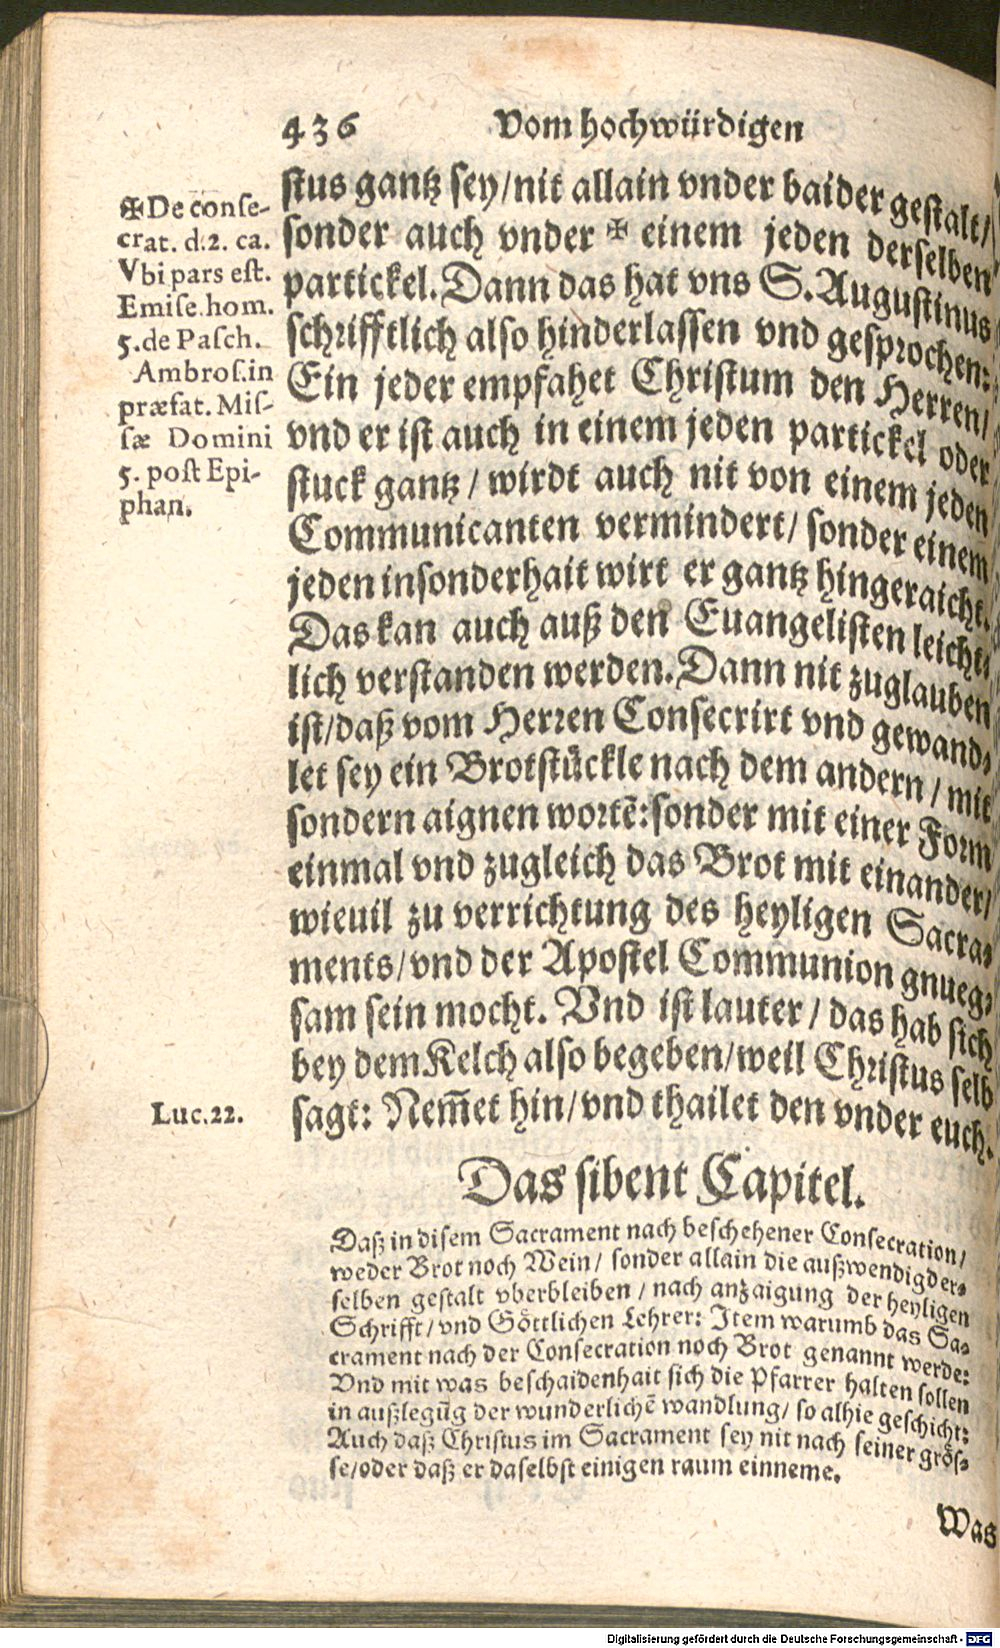 436 Vom hochwürdigen
stus gantz sey/nit allain vnder baider gestalt/
sonder auch vnder ✠ einem jeden derselben
partickel. Dann das hat vns S. Augustinus
schrifftlich also hinderlassen vnd gesprochen:
Ein jeder empfahet Christum den Herren/
vnd er ist auch in einem jeden partickel oder
stuck gantz/ wirdt auch nit von einem jeden
Communicanten vermindert/ sonder einem
jeden insonderhait wirt er gantz hingeraicht.
Das kan auch auß den Euangelisten leicht⸗
lich verstanden werden. Dann nit zuglauben
ist/daß vom Herren Consecrirt vnd gewand⸗
let sey ein Brotstückle nach dem andern/ mit
sondern aignen wortē: sonder mit einer Form
einmal vnd zugleich das Brot mit einander/
wieuil zu verrichtung des heyligen Sacra⸗
ments/vnd der Apostel Communion gnueg⸗
sam sein mocht. Vnd ist lauter/ das hab sich
bey dem Kelch also begeben/weil Christus selb
sagt: Nem̄et hin/vnd thailet den vnder euch.
✠De cōnse-
crat. d.2. ca.
Vbi pars est.
Emise. hom.
5. de Pasch.
Ambros. in
præfat. Mis-
sæ Domini
5. post Epi-
phan.
Luc.22.
Das sibent Capitel.
Daß in disem Sacrament nach beschehener Consecration/
weder Brot noch Wein/ sonder allain die außwendig der⸗
selben gestalt vberbleiben/ nach anzaigung der heyligen
Schrifft/ vnd Göttlichen Lehrer: Item warumb das Sa⸗
crament nach der Consecration noch Brot genannt werde:
Vnd mit was beschaidenhait sich die Pfarrer halten sollen
in außlegūg der wunderlichē wandlung/ so alhie geschicht:
Auch daß Christus im Sacrament sey nit nach seiner grös⸗
se/oder daß er daselbst einigen raum einneme.
Was
Digitalisierung gefördert durch die Deutsche Forschungsgemeinschaft - DFG